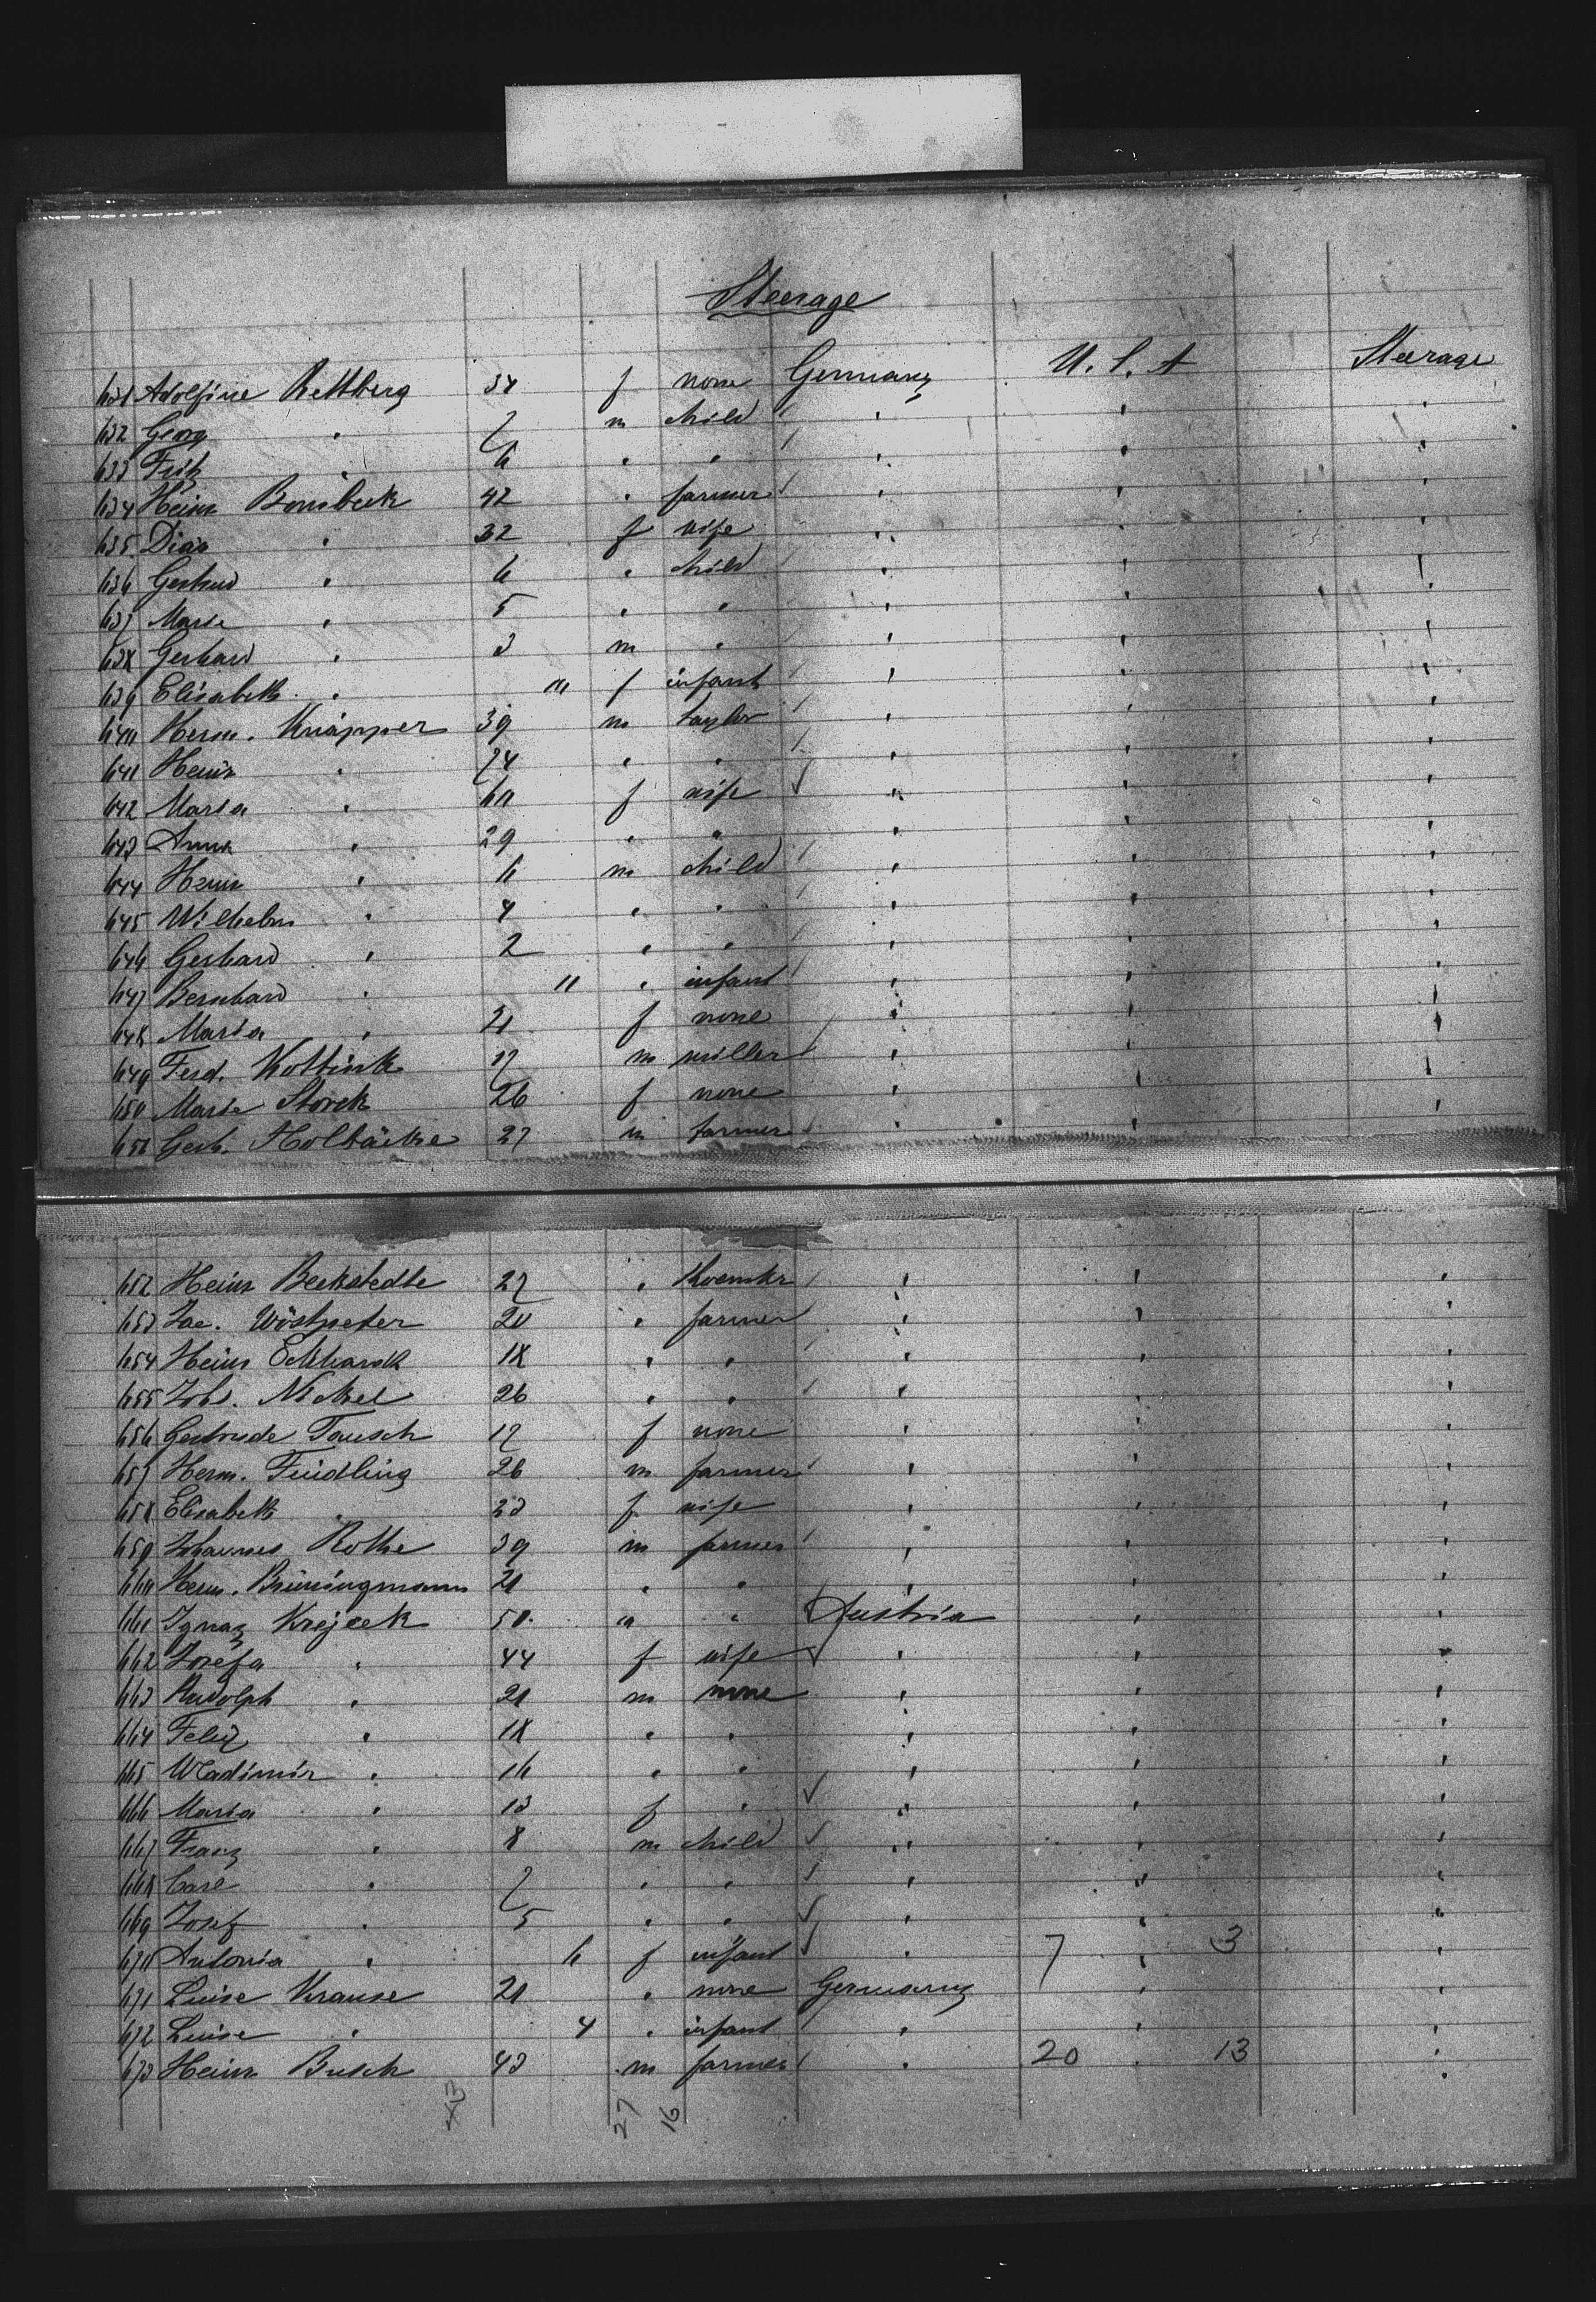 Steerage
631 Adolfine Rettberg 34 f none Germany U.S.A Steerage
632 Georg " 7 m child " " "
633 Fritz " 6 " " " " "
634 Heinr Bonsbeck 42 " farmer " " "
635 Dina " 32 f wife " " "
636 Gertrud " 6 " child " " "
637 Marie " 5 " " " " "
638 Gerhard " 3 m " " " "
639 Elisabeth " 10 f infant " " "
640 Herm. Knäpper 39 m taylor " " "
641 Heinr " 74 " " " " "
642 Maria " 60 f wife " " "
643 Anna " 29 " " " " "
644 Heinr " 6 m child " " "
645 Wilhelm " 4 " " " " "
646 Gerhard " 2 " " " " "
647 Bernhard " 11 " infant " " "
648 Maria " 21 f none " " "
649 Ferd. Kottink 17 m miller " " "
650 Marie Storck 26 f none " " "
651 Gerh. 27 m farmer " " "
652 Heinr Beckstedte 27 " " " "
653 Jac. Wöstpeter 20 " farmer " " "
654 Heinr Eckhardt 18 " " " " "
655 Johs. Nickel 26 " " " " "
656 Gertrude Tausch 17 f none " " "
657 Herm. Findling 26 m farmer " " "
658 Elisabeth " 23 f wife " " "
659 Johannes Rothe 39 m farmer " " "
660 Herm. Brüningmann 21 " " " " "
661 Ignaz Krejcek 50 " " Austria " "
662 Josefa " 44 f wife " " "
663 Rudolph " 21 m none " " "
664 Felix " 18 " " " " "
665 Wladimir " 16 " " " " "
666 Maria " 13 f " " " "
667 Franz " 8 m child " " "
668 Carl " 7 " " " " "
669 Josef " 5 " " " " "
670 Antonia " 6 f infant " 7 " 3 "
671 Luise Krause 21 " none Germany " "
672 Luise " 4 " infant " " "
673 Heinr Busch 43 m farmer " 20 " 13 "
27 16